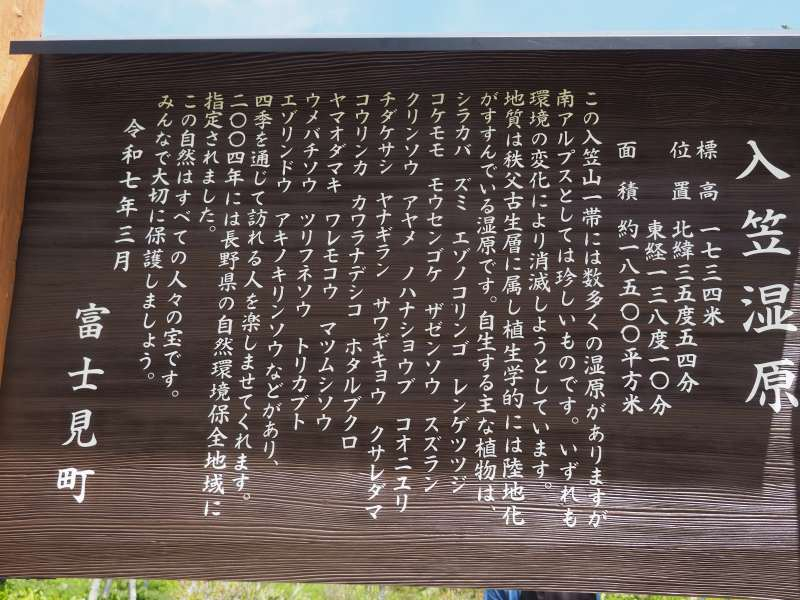 入笠湿原
標高 一七三四米
位置 北緯三五度五四分
東経一三八度一〇分
面積 約一八五〇〇平方米
この入笠山一帯には数多くの湿原がありますが
南アルプスとしては珍しいものです。いずれも
環境の変化により消滅しようとしています。
地質は秩父古生層に属し植生学的には陸地化
がすすんでいる湿原です。自生する主な植物は、
シラカバ ズミ エゾノコリンゴ レンゲツツジ
コケモモ モウセンゴケ ザゼンソウ スズラン
クリンソウ アヤメ ノハナショウブ コオニユリ
チダケサシ ヤナギラン サワギキョウ クサレダマ
コウリンカ カワラナデシコ ホタルブクロ
ヤマオダマキ ワレモコウ マツムシソウ
ウメバチソウ ツリフネソウ トリカブト
エゾリンドウ アキノキリンソウなどがあり、
四季を通じて訪れる人を楽しませてくれます。
二〇〇四年には長野県の自然環境保全地域に
指定されました。
この自然はすべての人々の宝です。
みんなで大切に保護しましょう。
令和七年三月
富士見町